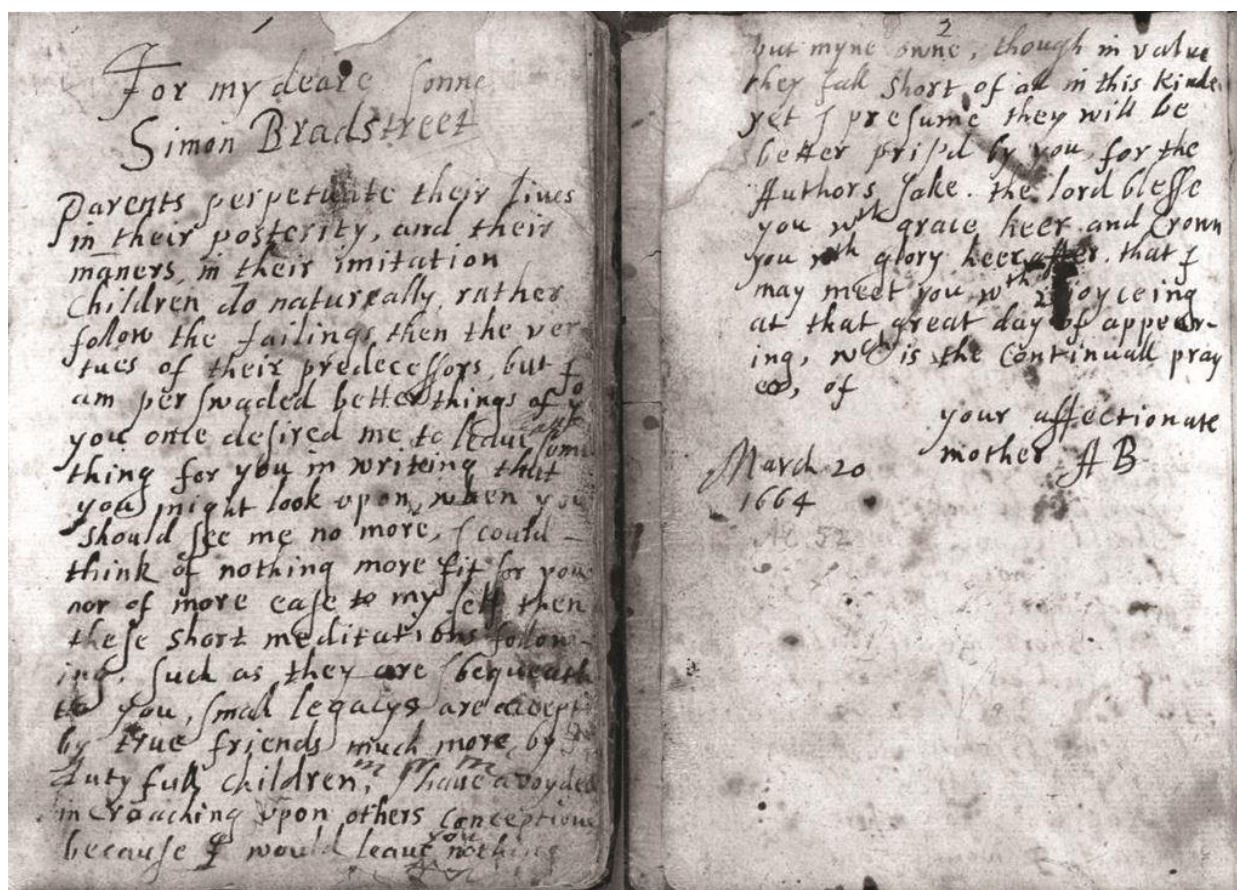 1
For my deare sonne
Simon Bradstreet
Parents perpetuate their lives
in their posterity, and their
maners in their imitation
Children do natureally rather
follow the failings then the ver
tues of their predecessors, but I
am perswaded better things of y
you once desired me to leave some
thing for you in writeing that
you might look upon, when you
should see me no more, I could
think of nothing more fit for you
nor of more ease to my self then
these short meditations follow-
ing. Such as they are I bequeath
to you, small legacys are accept
by true friends much more by
duty full children, I have avoyded
incroaching upon others conceptions
because I would leave you nothing
2
but myne owne, though in value
they fall short of all in this kinde
yet I presume they will be
better pris'd by you, for the
Authors sake. the lord blesse
you wth grace heer and crown
you wth glory heerafter. that I
may meet you wth rejoyceing
at that great day of appear-
ing, wch is the continuall pray
er, of
your affectionate
mother A B
March 20
1664
Æt. 52